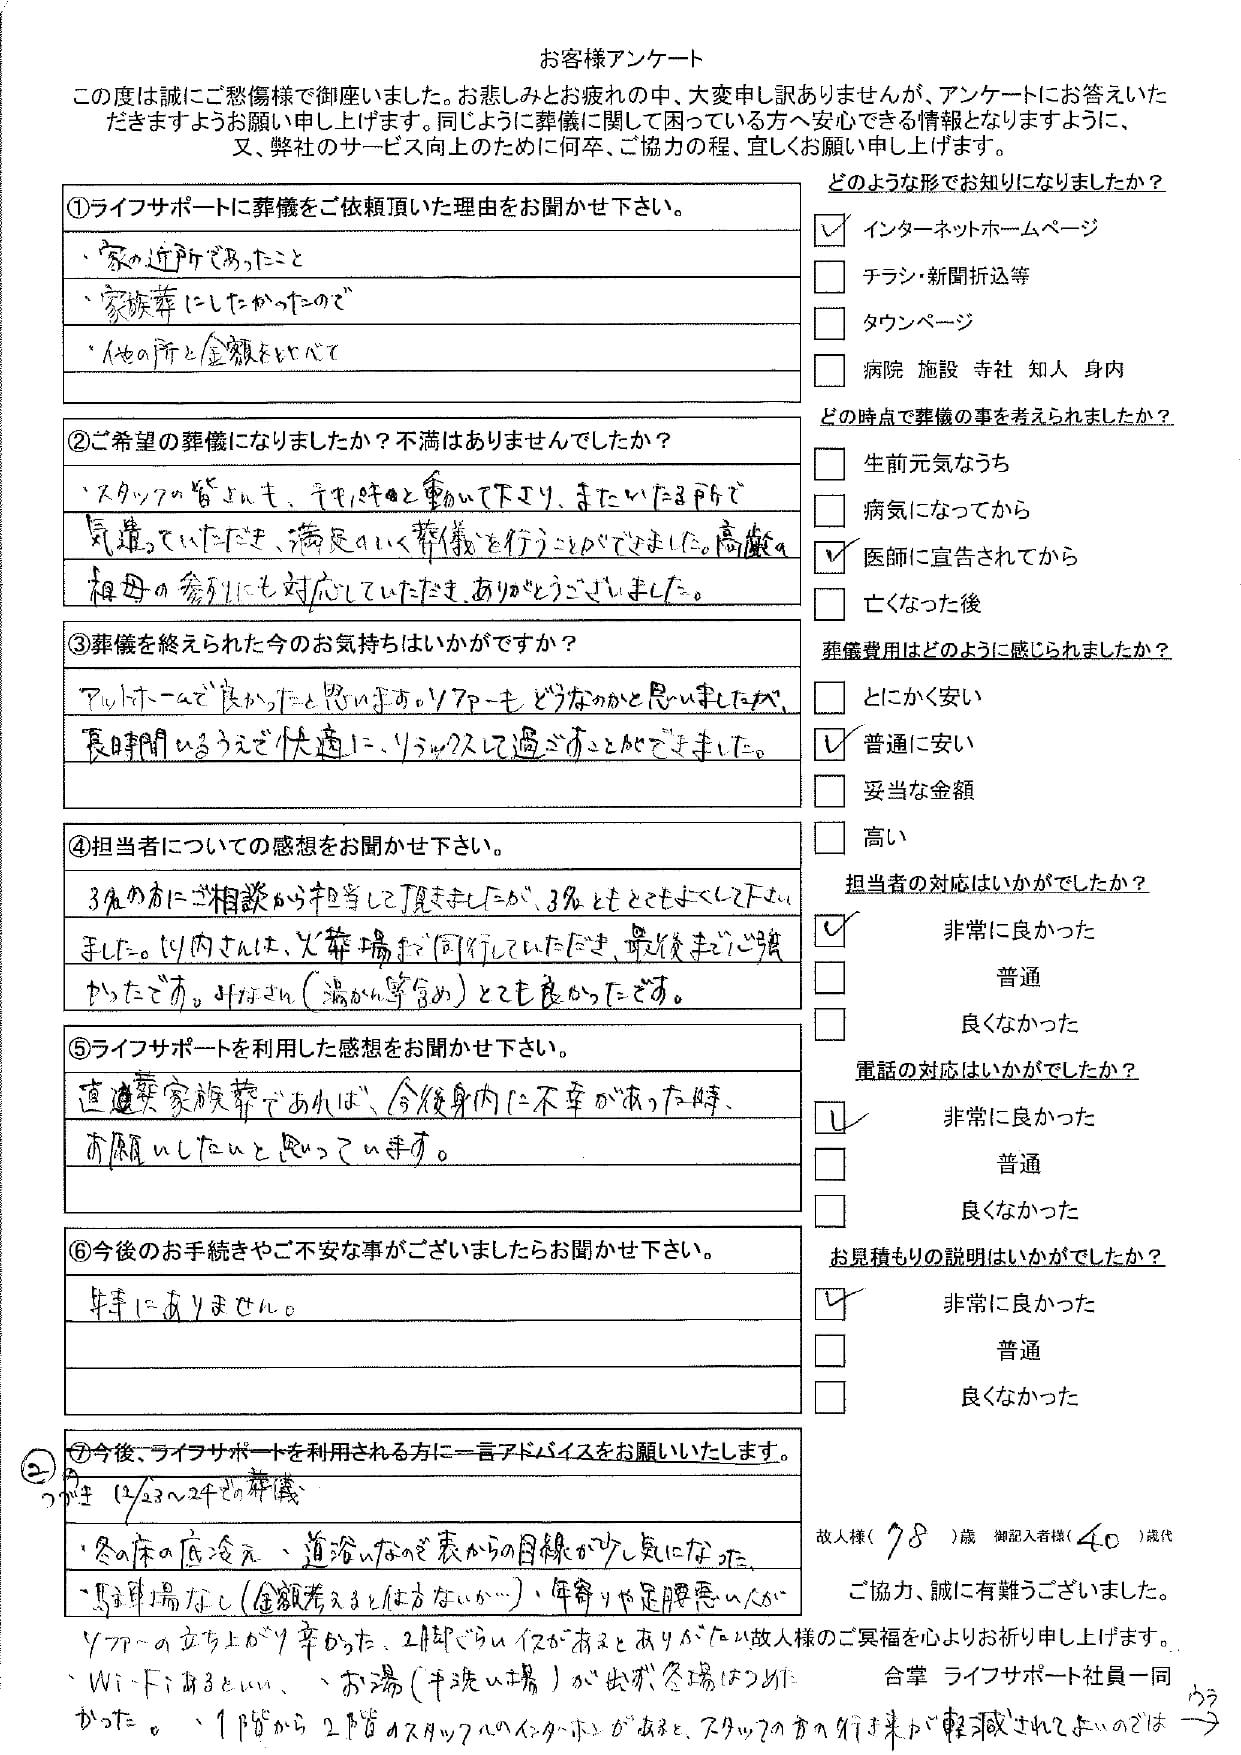 お客様アンケート
この度は誠にご愁傷様で御座いました。お悲しみとお疲れの中、大変申し訳ありませんが、アンケートにお答えいた
だきますようお願い申し上げます。同じように葬儀に関して困っている方へ安心できる情報となりますように、
又、弊社のサービス向上のために何卒、ご協力の程、宜しくお願い申し上げます。
①ライフサポートに葬儀をご依頼頂いた理由をお聞かせ下さい。
・家の近所であったこと
・家族葬にしたかったので
・他の所と金額をくらべて
②ご希望の葬儀になりましたか？不満はありませんでしたか？
・スタッフの皆さんも、テキパキと動いて下さり、またいたる所で
気遣っていただき、満足のいく葬儀を行うことができました。高齢の
祖母の参列にも対応していただき、ありがとうございました。
③葬儀を終えられた今のお気持ちはいかがですか？
アットホームで良かったと思います。ソファーもどうなのかと思いましたが、
長時間いるうえで快適に、リラックスして過ごすことができました。
④担当者についての感想をお聞かせ下さい。
3名の方にご相談から担当して頂きましたが、3名ともとてもよくして下さい
ました。 内さんは、火葬場まで同行していただき、最後まで心強
かったです。みなさん(湯かん等含め)とても良かったです。
⑤ライフサポートを利用した感想をお聞かせ下さい。
直葬家族葬であれば、今後身内に不幸があった時、
お願いしたいと思っています。
⑥今後のお手続きやご不安な事がございましたらお聞かせ下さい。
特にありません。
⑦今後、ライフサポートを利用される方に一言アドバイスをお願いいたします。
②のつづき 12/23～24での葬儀
・冬の床の底冷え ・道沿いなので表からの目線が少し気になった
・駐車場なし(金額考えると仕方ないか…) ・年寄りや足腰悪い人が
ソファーの立ち上がり辛かった、2脚ぐらいイスがあるとありがたい
・Wi-Fiあるといい、 ・お湯(手洗い場)が出ず、冬場はつめた
かった。 ・1階から2階のスタッフへのインターホンがあると、スタッフの方の行き来が軽減されてよいのでは
ウラ→
どのような形でお知りになりましたか？
✓ インターネットホームページ
チラシ・新聞折込等
タウンページ
病院 施設 寺社 知人 身内
どの時点で葬儀の事を考えられましたか？
生前元気なうち
病気になってから
✓ 医師に宣告されてから
亡くなった後
葬儀費用はどのように感じられましたか？
とにかく安い
✓ 普通に安い
妥当な金額
高い
担当者の対応はいかがでしたか？
✓ 非常に良かった
普通
良くなかった
電話の対応はいかがでしたか？
✓ 非常に良かった
普通
良くなかった
お見積もりの説明はいかがでしたか？
✓ 非常に良かった
普通
良くなかった
故人様( 78 )歳 御記入者様( 40 )歳代
ご協力、誠に有難うございました。
故人様のご冥福を心よりお祈り申し上げます。
合掌 ライフサポート社員一同